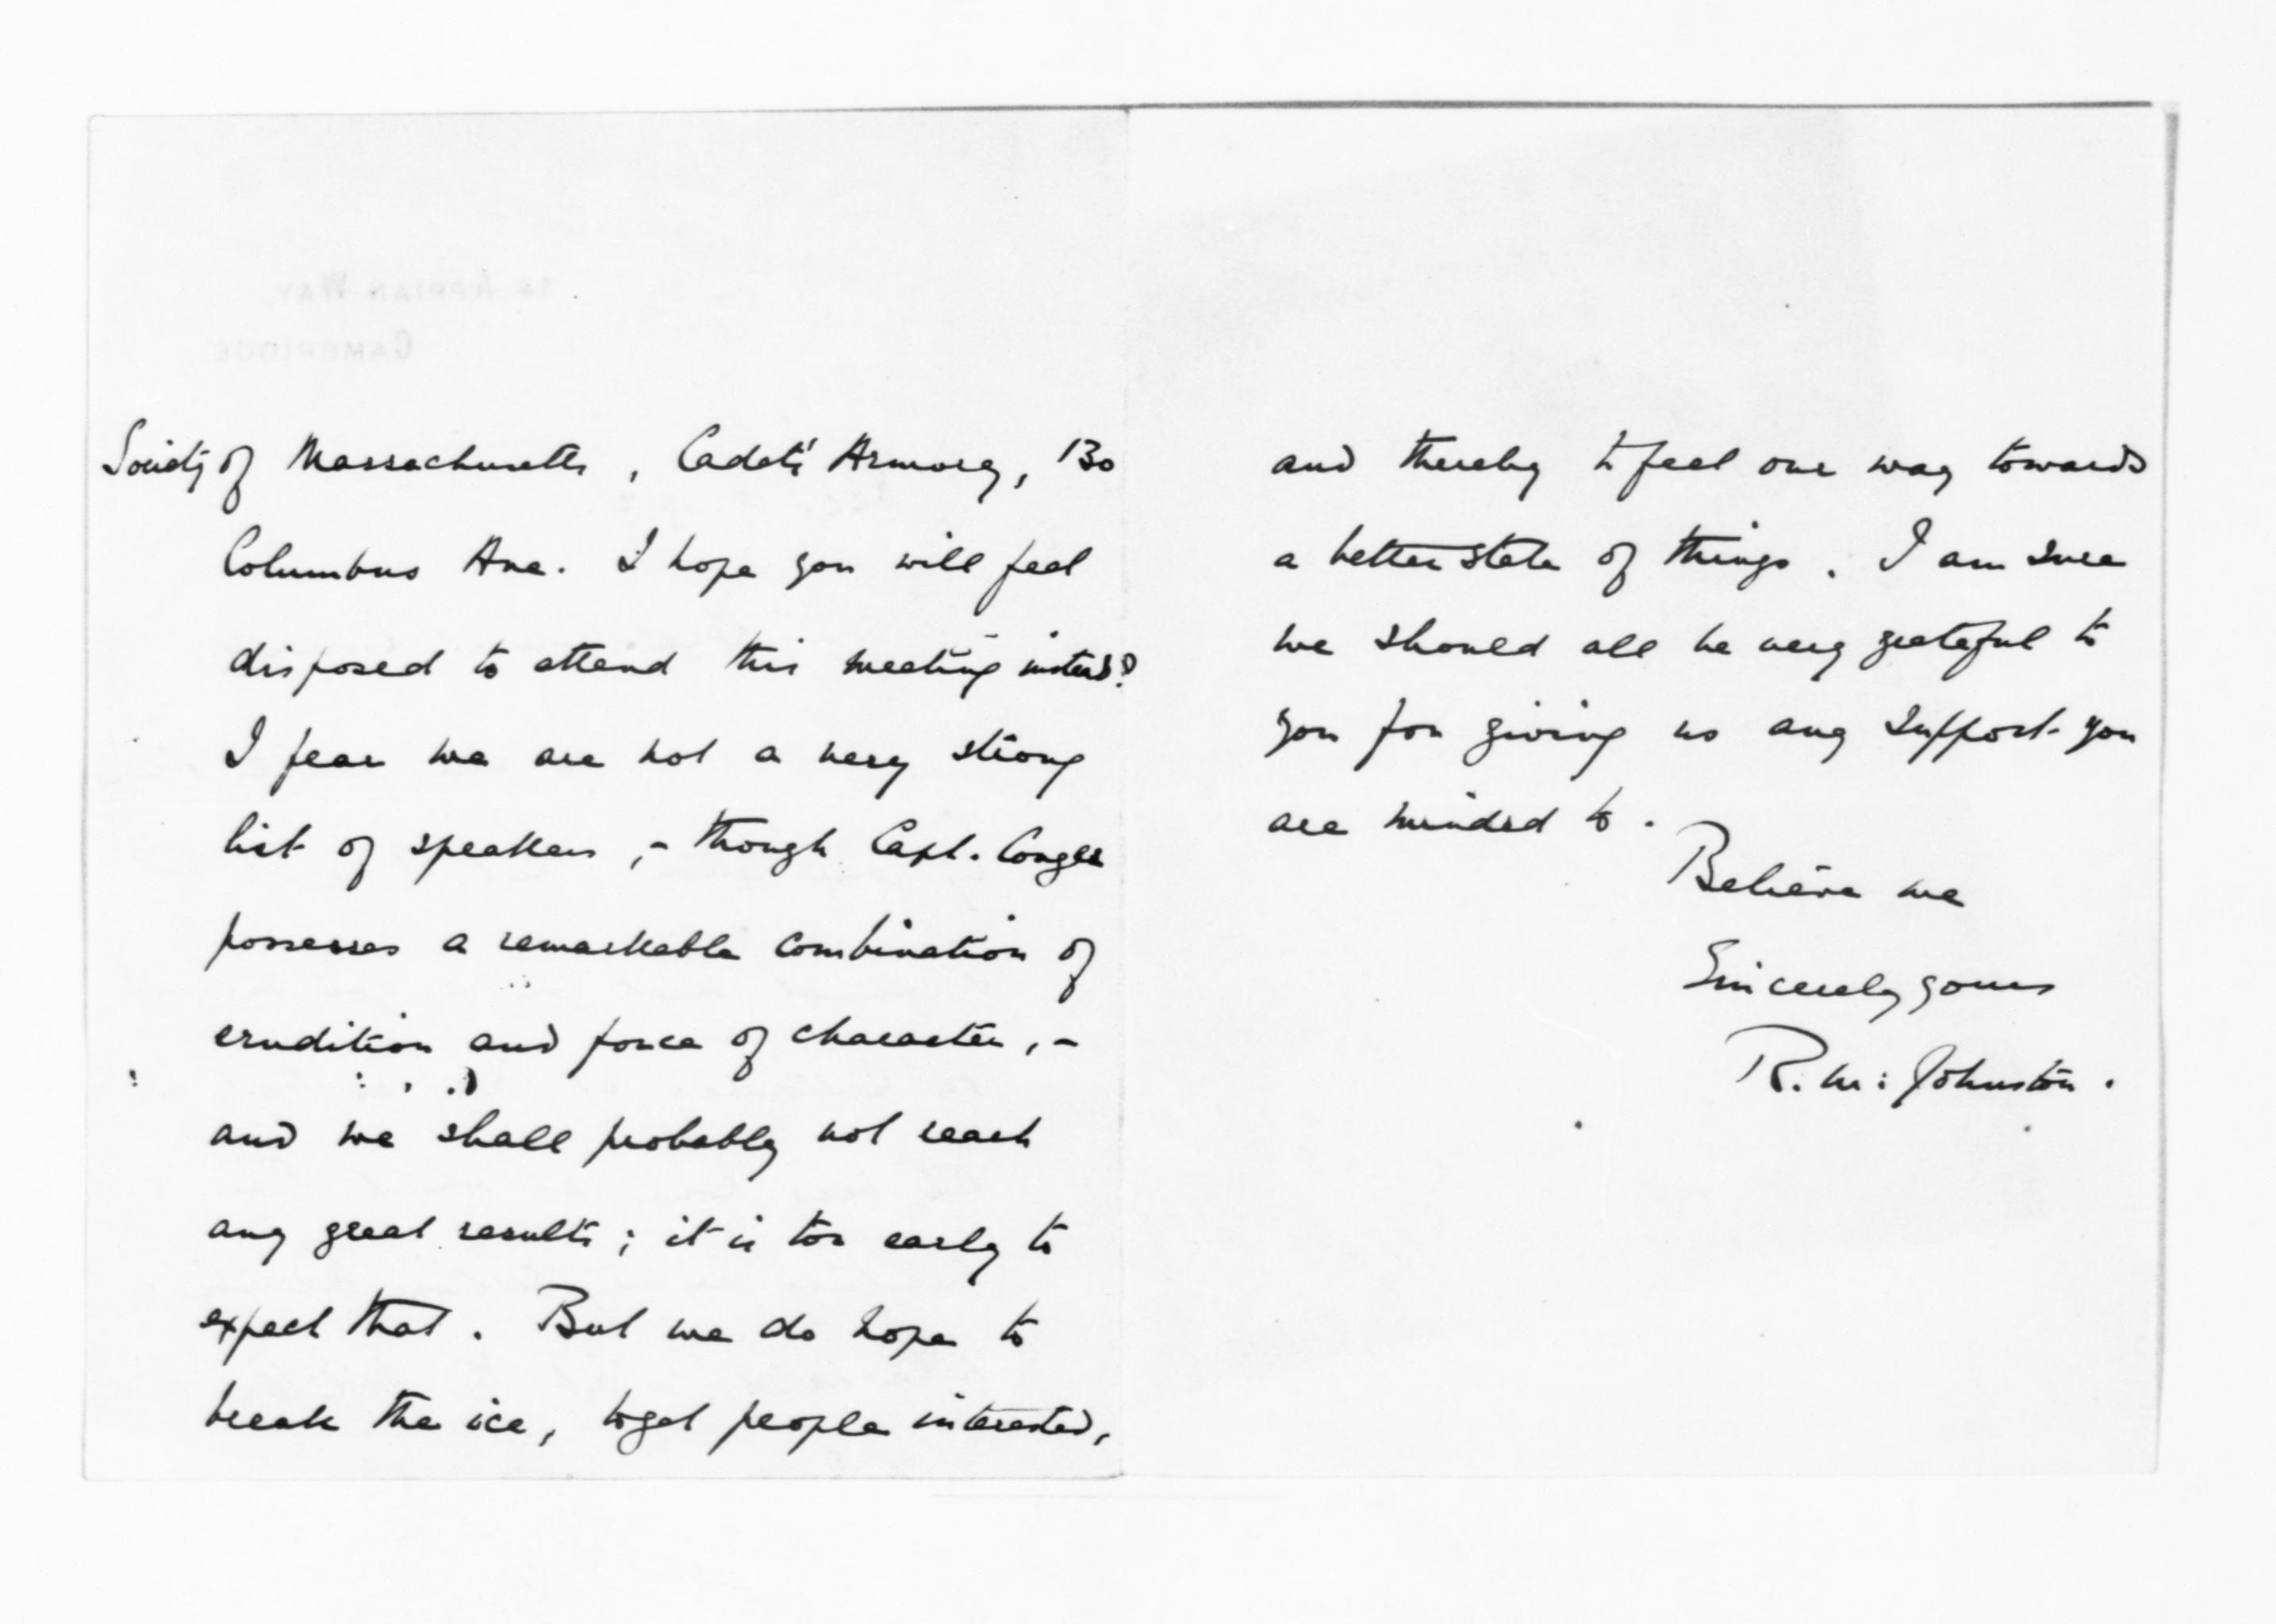 Society of Massachusetts, Cadets' Armory, 130
Columbus Ave. I hope you will feel
disposed to attend this meeting instead?
I fear we are not a very strong
list of speakers, – though Capt. Conger
possesses a remarkable combination of
erudition and force of character, –
and we shall probably not reach
any great results; it is too early to
expect that. But we do hope to
break the ice, to get people interested,
and thereby to feel our way towards
a better state of things. I am sure
we should all be very grateful to
you for giving us any support you
are minded to.
Believe me
Sincerely yours
R. M: Johnston.